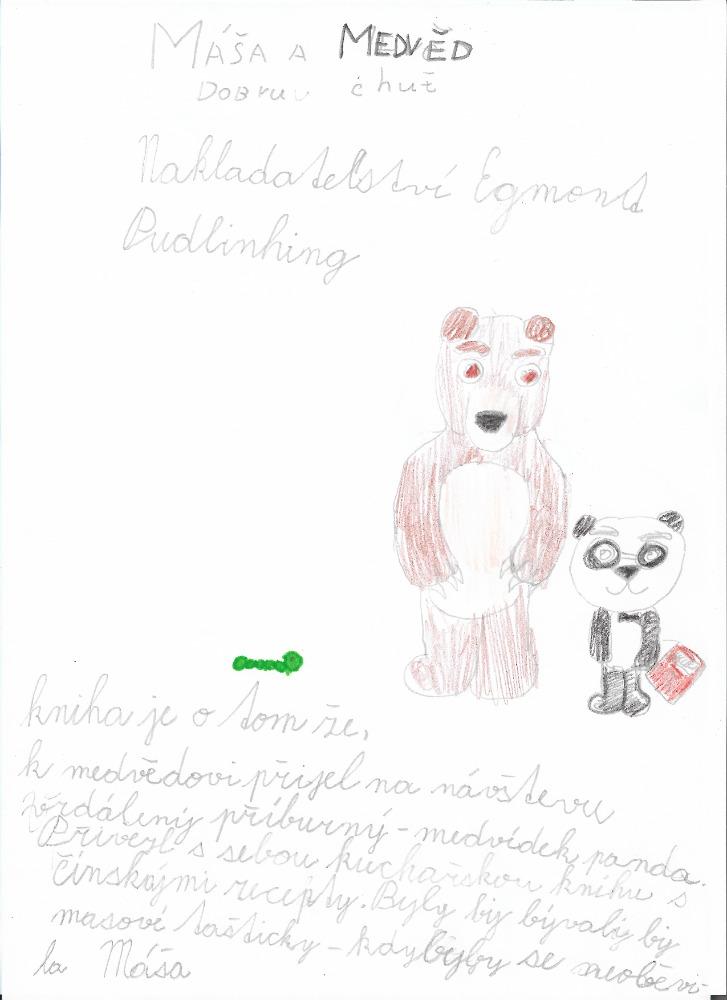 MÁŠA A MEDVĚD
DOBRUU chuť
Nakladatelství Egmont
Pudlinhing
kniha je o tom že,
k medvědovi přijel na návštevu
vzdálený příburný - medvídek panda.
Přivezl s sebou kuchařskou knihu s
čínskými recepty. Byly by bývaly by
masové taštičky - kdyby by se neoběvi-
la Máša